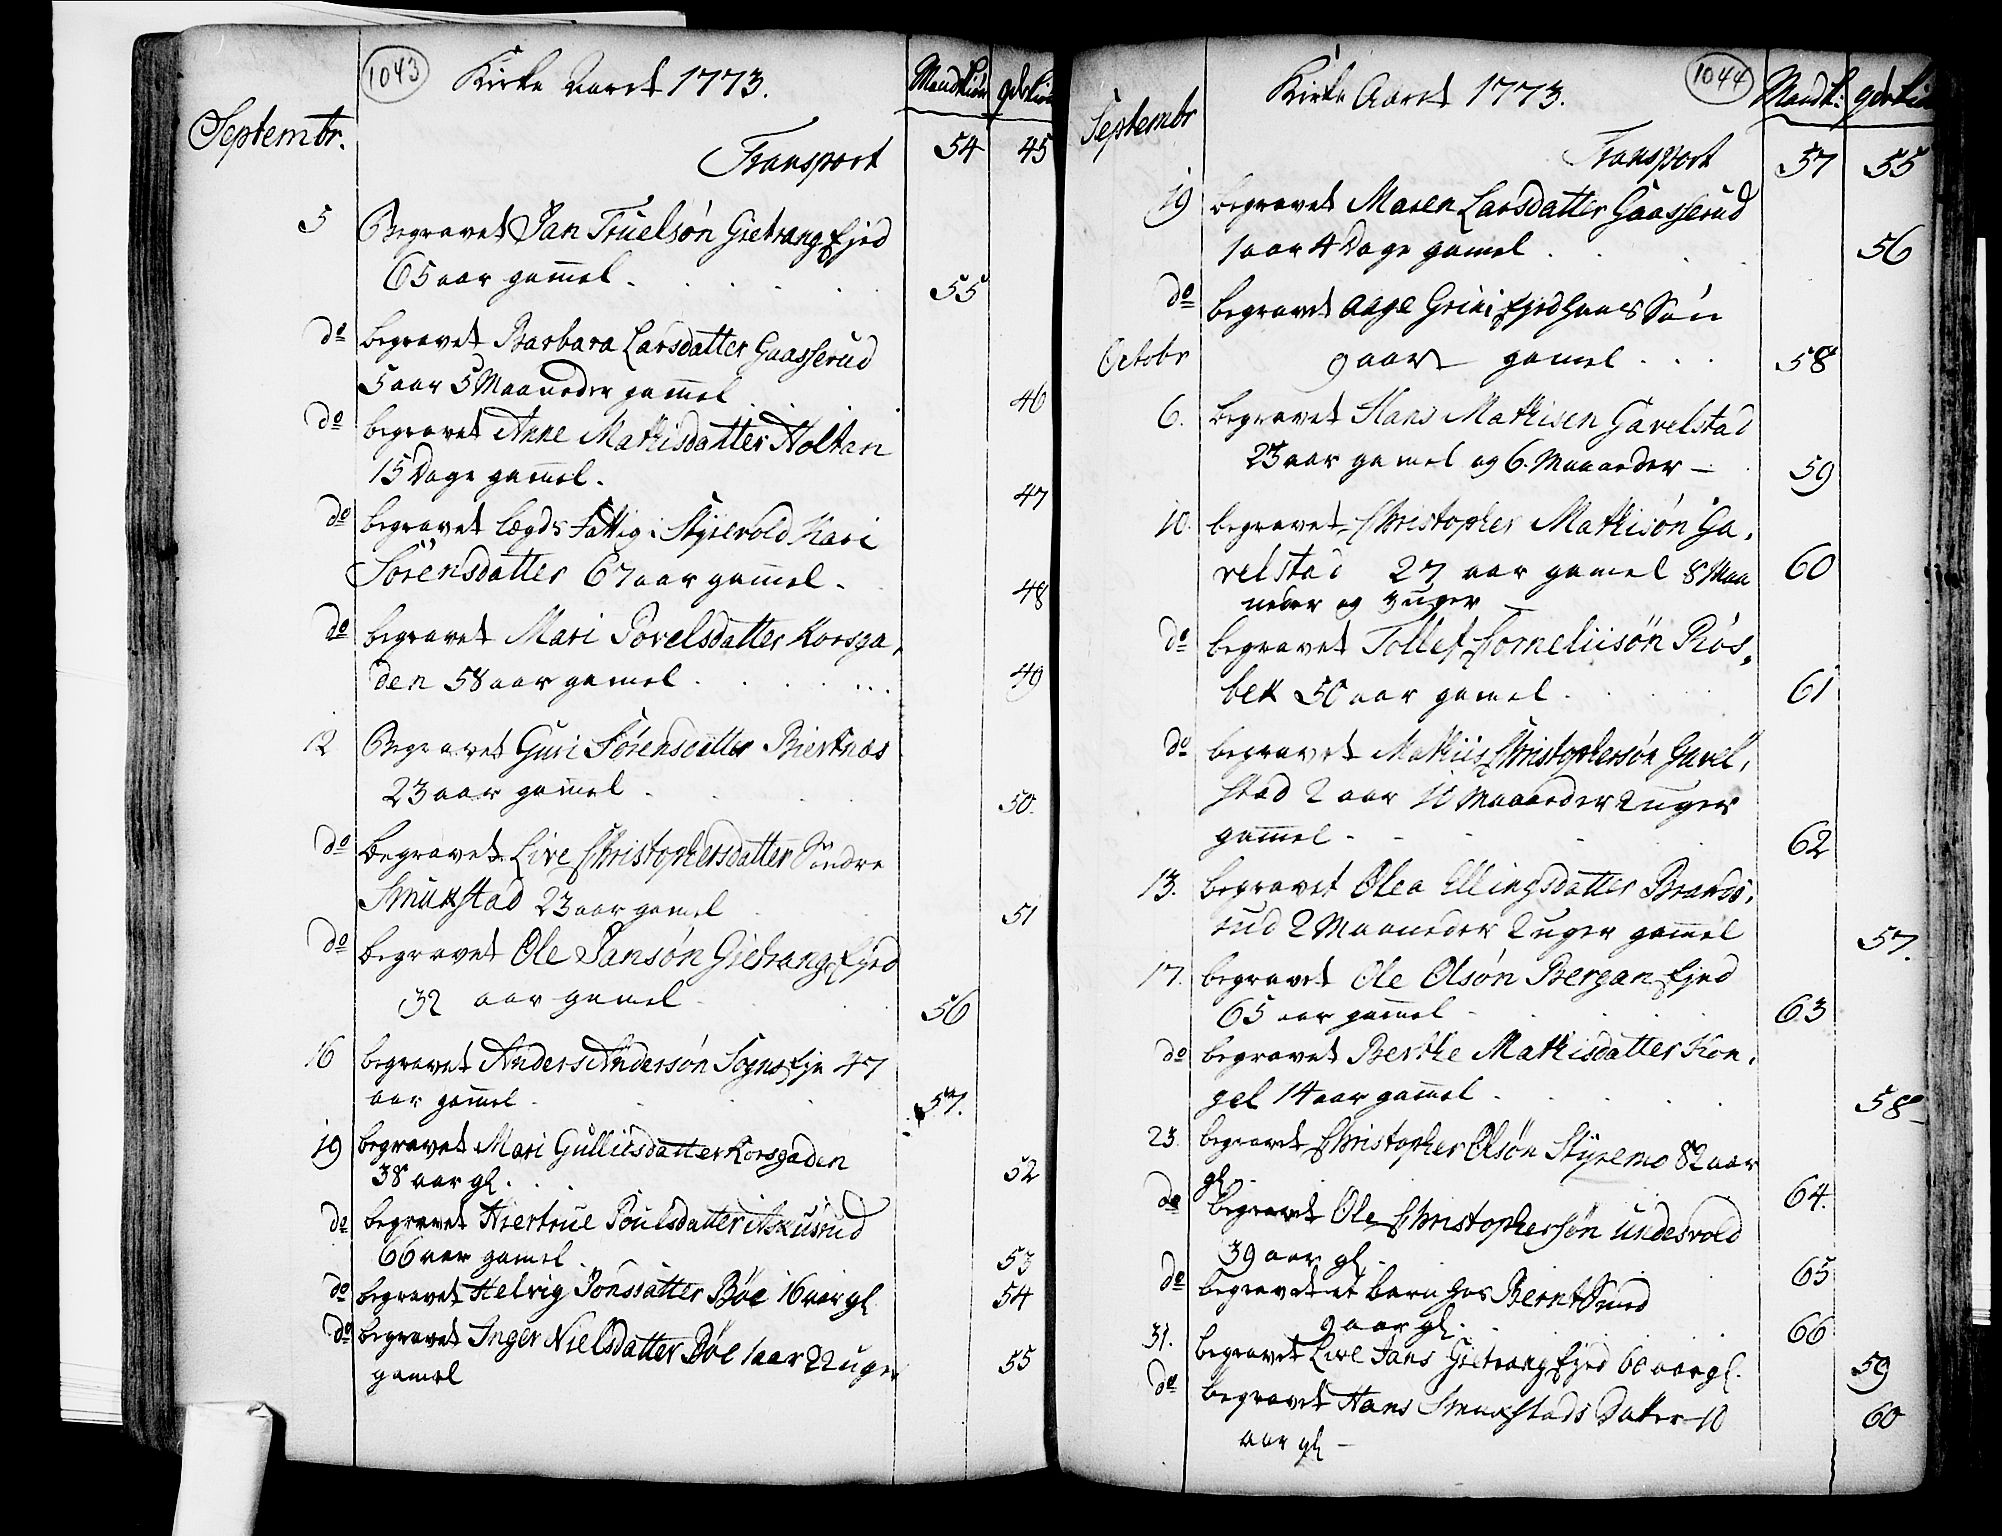 1043
Kirke Aaret 1773.
Mandkiön qvkiön
Septembr.
Transport 54 45
5 Begravet Jan Truelsøn Gietrang Ejed
65 aar gam̄el . 55
do begravet Barbara Larsdatter Gaasserud
5 aar 5 Maaneder gam̄el 46
do begravet Anne Mathisdatter Holtan
15 Dage gam̄el. 47
do begravet Lægds Fattig: Styrvold Kari
Sörensdatter 67 aar gam̄el. 48
do begravet Mari Povelsdatter Korsga,
den 58 aar gamel . . . 49
12 Begravet Guri Sørensdatter Biertnæs
23 aar gam̄el . 50.
do begravet Live Christophersdatter Söndre
Smukstad 23 aar gamel 51
do begravet Ole Jansøn Gietrang Ejed
32 aar gamel 56
16 begravet Anders Andersøn Sogns Eje 47
aar gam̄el . 57.
19 begravet Mari Gulliesdatter Korsgaden
38 aar gl. . . 52
do begravet Kiertrue Poulsdatter Askusrud
66 aar gamel . 53
do begravet Helvig Jonsdatter Bøe 16 aar gl 54
do begravet Inger Nielsdatter Bøe 1 aar 22 uger
gamel 55
1044
Kirke Aaret 1773.
Mandk: qvkiön
Septembr
Transport 57 55
19 begravet Maren Larsdatter Gaasserud
1 aar 4 Dage gamel . 56
do begravet Aage Grini Ejed hans Søn
Octobr 9 aar gamel . . . 58
6. begravet Hans Mathisen Gavelstad
23 aar gamel og 6. Maaneder — 59
10. begravet Christopher Mathisøn Ga,
velstad 27 aar gamel 8 Maa 60
neder og 3 uger
do begravet Tollef Corneliisøn Røs,
bek 50 aar gamel . 61
do begravet Mathiis Christophersøn Gavel,
stad 2 aar 11 Maaneder 2 uger
gam̄el . 62
13. begravet Olea Ellingsdatter Brands,
rud 2 Maaneder 2 uger gam̄el 57.
17. begravet Ole Olsøn Bergan Ejed
65 aar gam̄el 63
do begravet Berthe Mathisdatter Kon,
gel 14 aar gam̄el . 58
23. begravet Christopher Olsøn Styremo 82 aar
gl. 64.
do begravet Ole Christophersøn Undesvold
39 aar gl . 65
do begravet et barn hos Bernt Smed
9 aar gl. 66
31. begravet Live Jans Gietrang Ejed 60 aar gl. 59
do begravet Hans Smukstads Datter 10 60
aar gl —